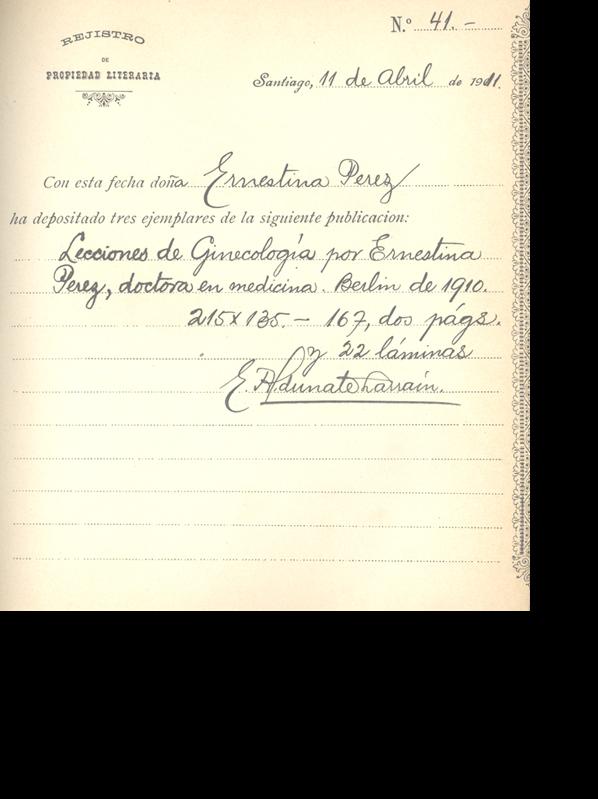 N.º 41.-
REJISTRO
DE
PROPIEDAD LITERARIA
Santiago, 11 de Abril de 1911.
Con esta fecha doña Ernestina Perez
ha depositado tres ejemplares de la siguiente publicacion:
Lecciones de Ginecología por Ernestina
Perez, doctora en medicina. Berlin de 1910.
215x135. - 167, dos págs.
y 22 láminas
E. Aldunate Larraín.